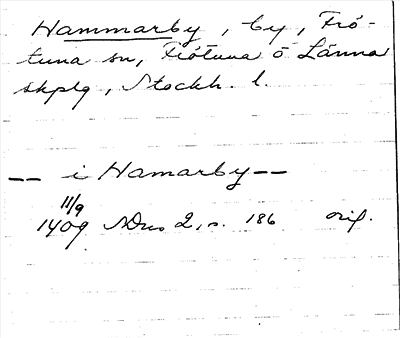 Hammarby, by, Frö-
tuna sn, Frötuna o Länna
skplg, Stockh. l.
-- i Hamarby --
11/9
1409 SDns 2, s. 186 orig.